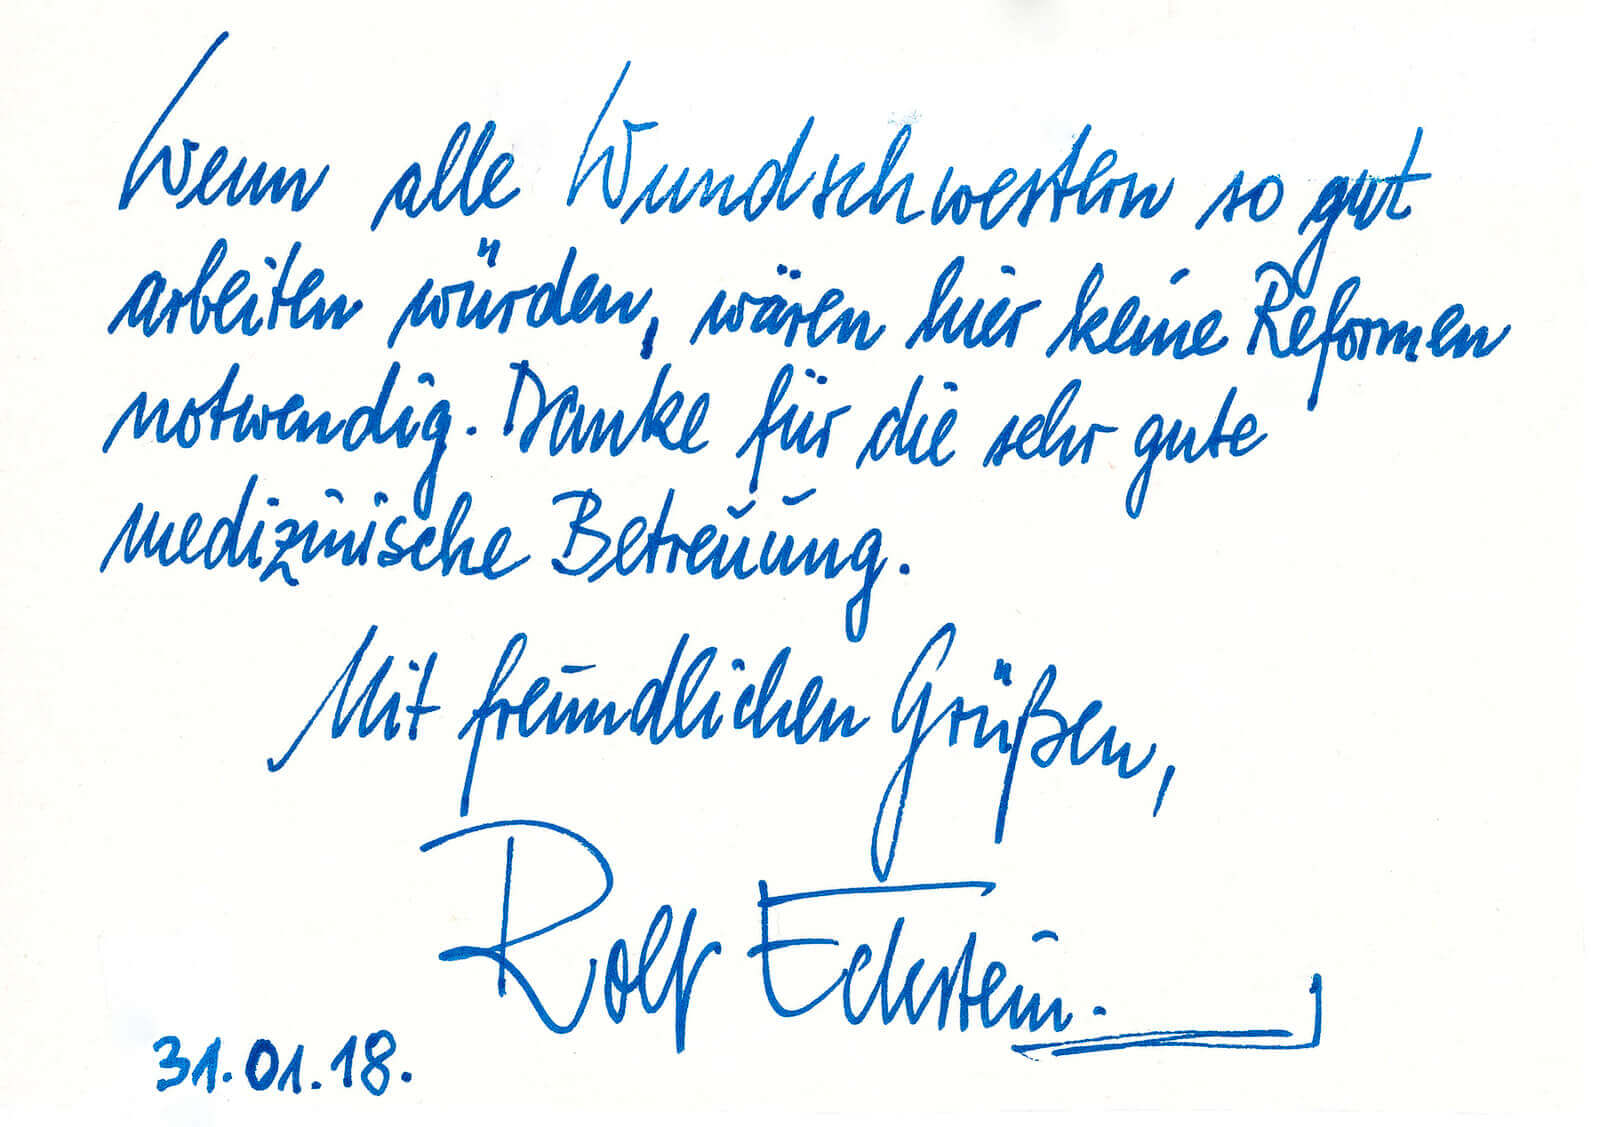 Wenn alle Wundschwestern so gut
arbeiten würden, wären hier keine Reformen
notwendig. Danke für die sehr gute
medizinische Betreuung.
Mit freundlichen Grüßen,
Rolf Eckstein.
31.01.18.